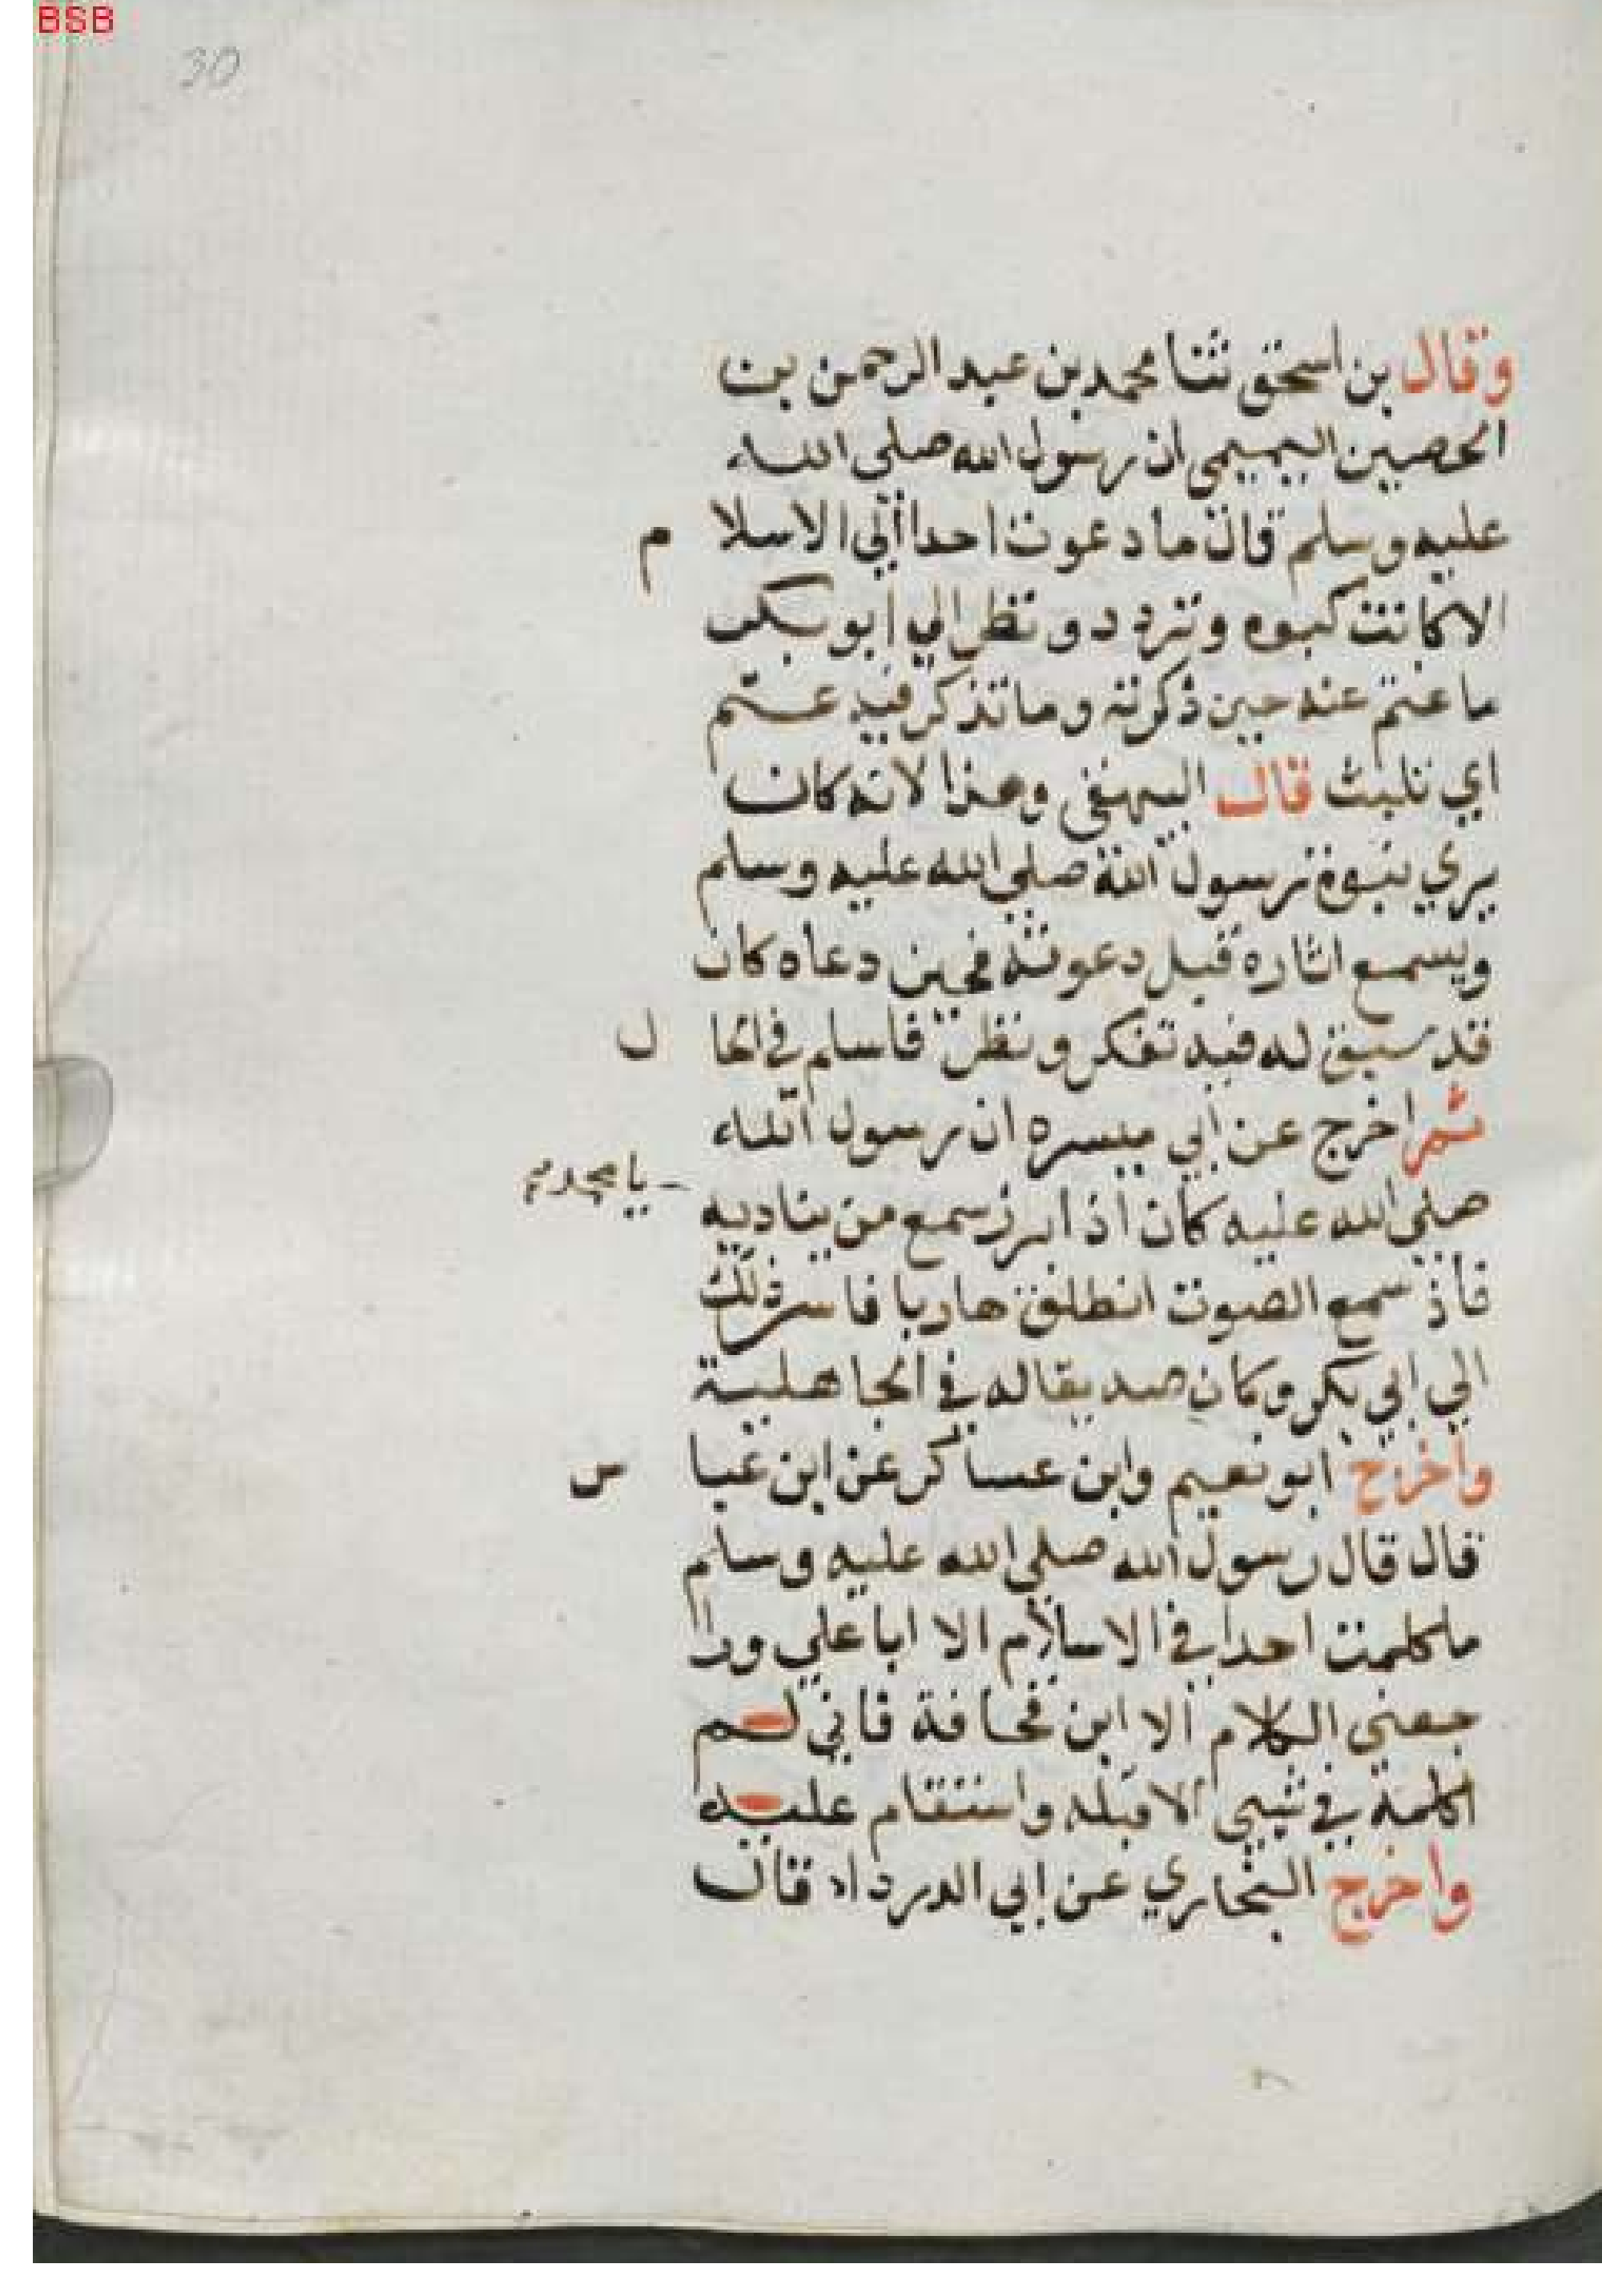 BSB
30
وقال بن اسحق ثنا محمد بن عبد الرحمن بن
الحصين التميمي ان رسول الله صلي الله
عليه وسلم قال ما دعوت احدا الي الاسلا م
الا كانت كبوه وتردد ونظر الي ابو بكر
ما عتم عنه حين ذكرته وما تذكر فيه عتم
اي تلبث قال البيهقي وهذا لانه كان
يري نبوة رسول الله صلي الله عليه وسلم
ويسمع اثاره قبل دعوته فحين دعاه كان
قد سبق له فيه تفكر ونظر فاسلم في الحا ل
ثم اخرج عن ابي ميسره ان رسول الله
صلي الله عليه كان اذا برز سمع من يناديه يا محمد
فاذ سمع الصوت انطلق هاربا فاسر ذلك
الي ابي بكر وكان صديقا له في الجاهلية
واخرج ابو نعيم وابن عساكر عن ابن عبا س
قال قال رسول الله صلي الله عليه وسلم
ما كلمت احدا في الاسلام الا ابا علي ورا
جعني الكلام الا ابن قحافة فاني لم
اكلمه في شيي الا قبله واستقام عليه
واخرج البخاري عن ابي الدرداء قال